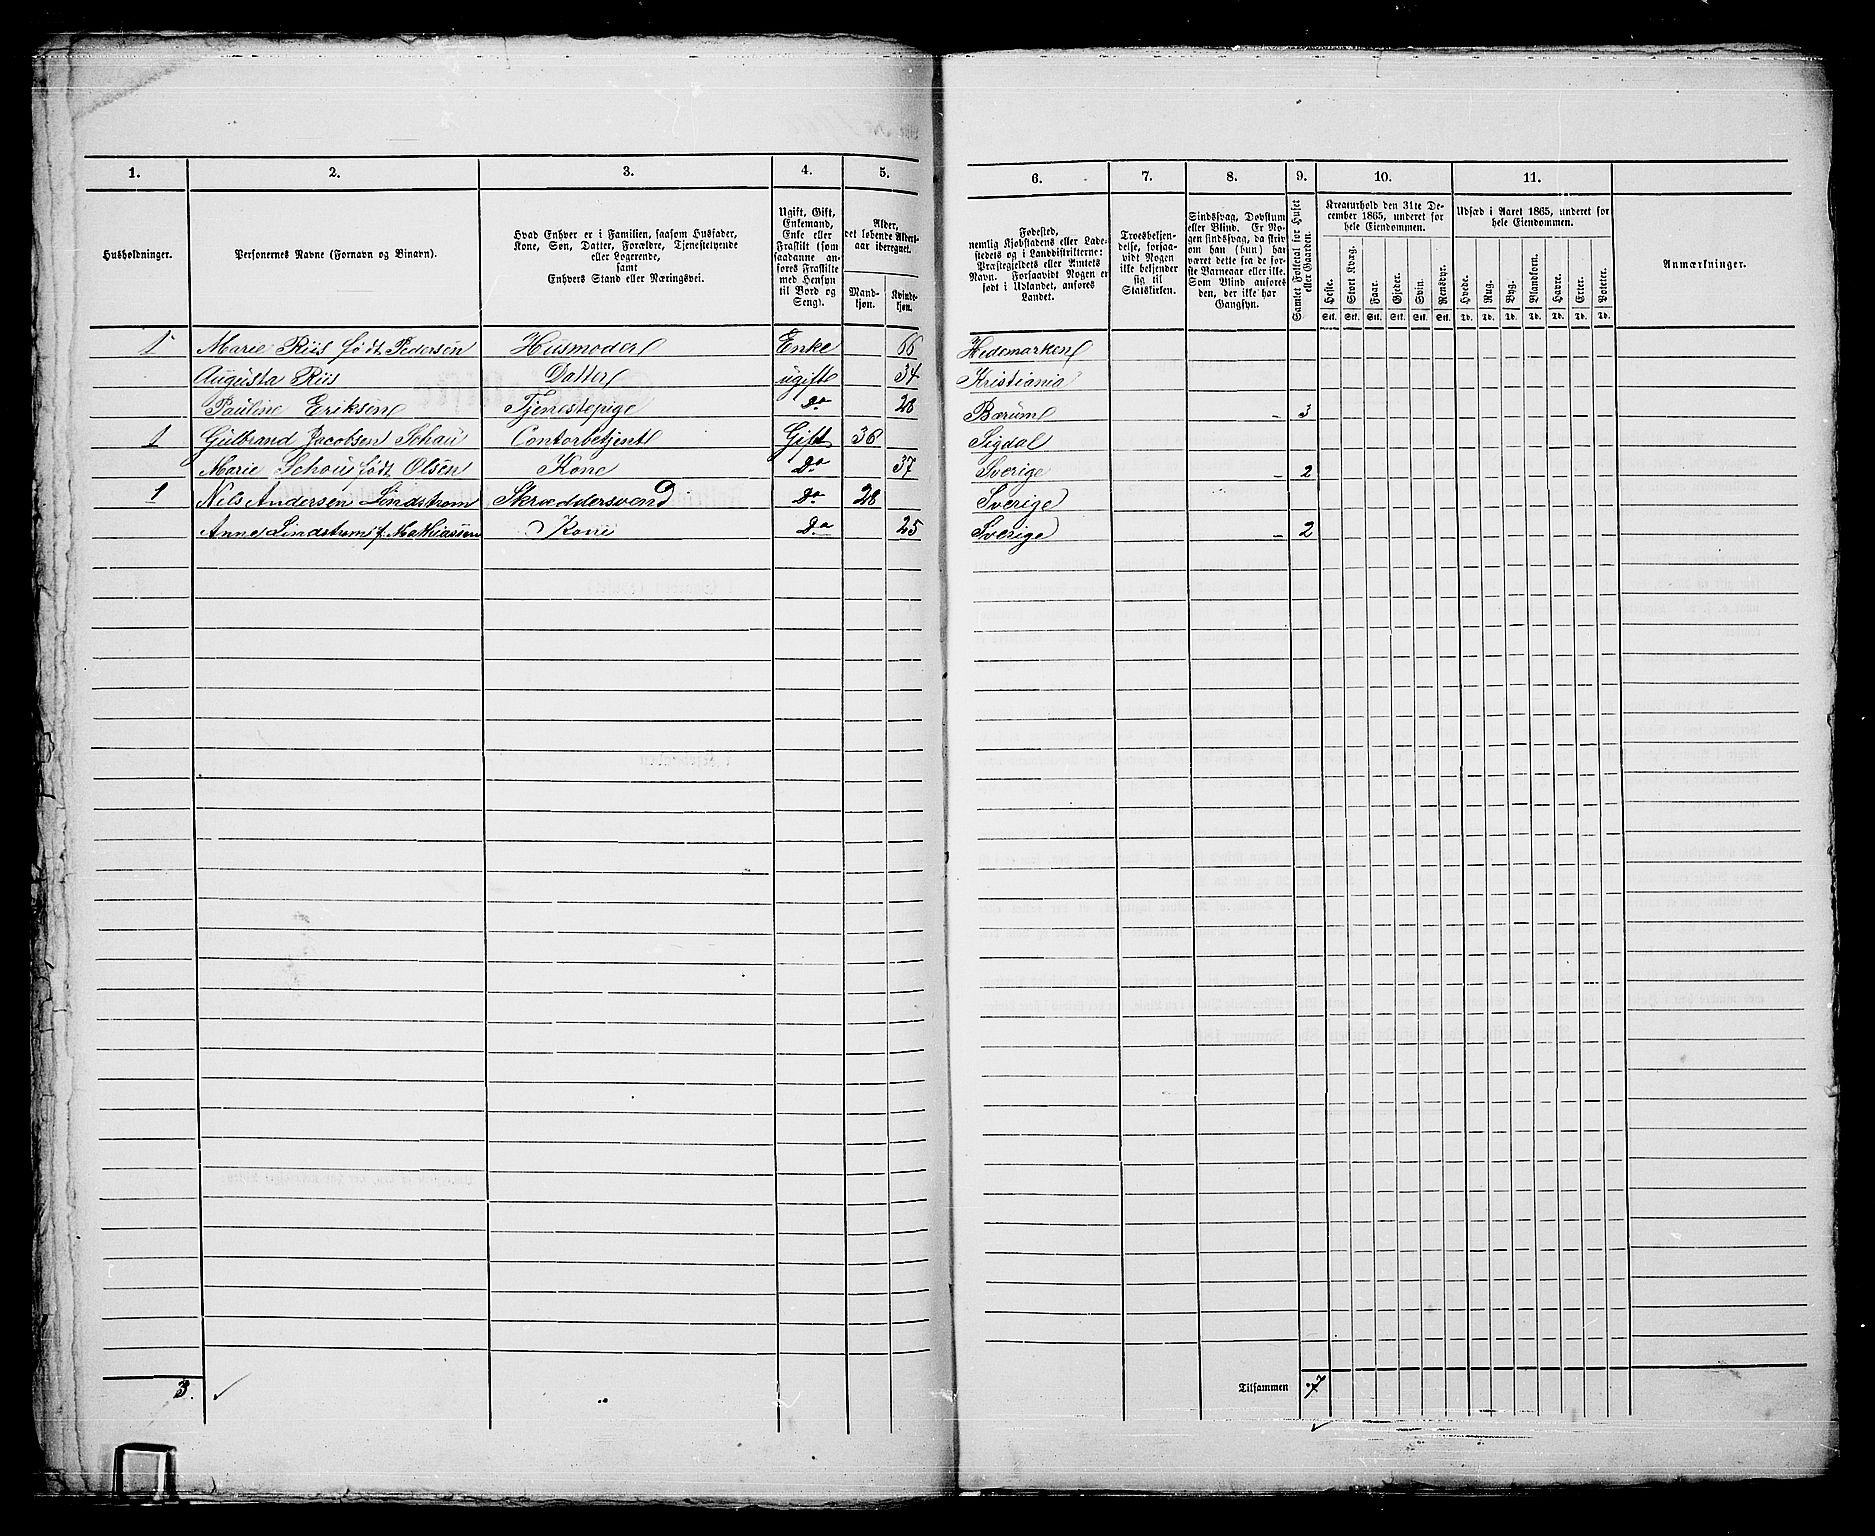 1. 2. 3. 4. 5. 6. 7. 8. 9. 10. 11.
Husholdninger.
Personernes Navne (Fornavn og Binavn).
Hvad Enhver er i Familien, saasom Husfader,
Kone, Søn, Datter, Forældre, Tjenestetyende
eller Logerende,
samt
Enhvers Stand eller Næringsvei.
Ugift, Gift,
Enkemand,
Enke eller
Fraskilt (som
saadanne anføres
Fraskilte
med Hensyn
til Bord og
Seng).
Alder,
det løbende Alders-
aar iberegnet.
Mand-
kjøn.
Kvinde-
kjøn.
Fødested,
nemlig Kjøbstadens eller Lade-
stedets og i Landdistrikterne:
Præstegjeldets eller Amtets
Navn. Forsaavidt Nogen er
født i Udlandet, anføres
Landet.
Troesbekjen-
delse, forsaa-
vidt Nogen
ikke bekjender
sig til
Statskirken.
Sindssvag, Døvstum
eller Blind. Er No-
gen sindssvag, da skriv
om han (hun) har
været dette fra de før-
ste Barneaar eller ikke.
Som Blind anføres
den, der ikke har
Gangsyn.
Samlet Folketal for Huset
eller Gaarden.
Kreaturhold den 31te De-
cember 1865, underet for
hele Eiendommen.
Heste. Stort Kvæg. Faar. Gjeder. Svin. Rensdyr.
Stk. Stk. Stk. Stk. Stk. Stk.
Udsæd i Aaret 1865, underet for
hele Eiendommen.
Hvede. Rug. Byg. Blandkorn. Havre. Erter. Poteter.
Td. Td. Td. Td. Td. Td. Td.
Anmærkninger.
1 Marie Riis født Pedersen Husmoder Enke 66 Hedemarken
Augusta Riis Datter ugift 34 Kristiania
Pauline Eriksen Tjenestepige Do 28 Bærum - 3
1 Gulbrand Jacobsen Schou Contorbetjent Gift 36 Sigdal
Marie Schou født Olsen Kone Do 37 Sverige - 2
1 Nils Andersen Lindstrøm Skræddersvend Do 28 Sverige
Anne Lindstrøm f. Mathiassen Kone Do 25 Sverige - 2
3.
Tilsammen 7